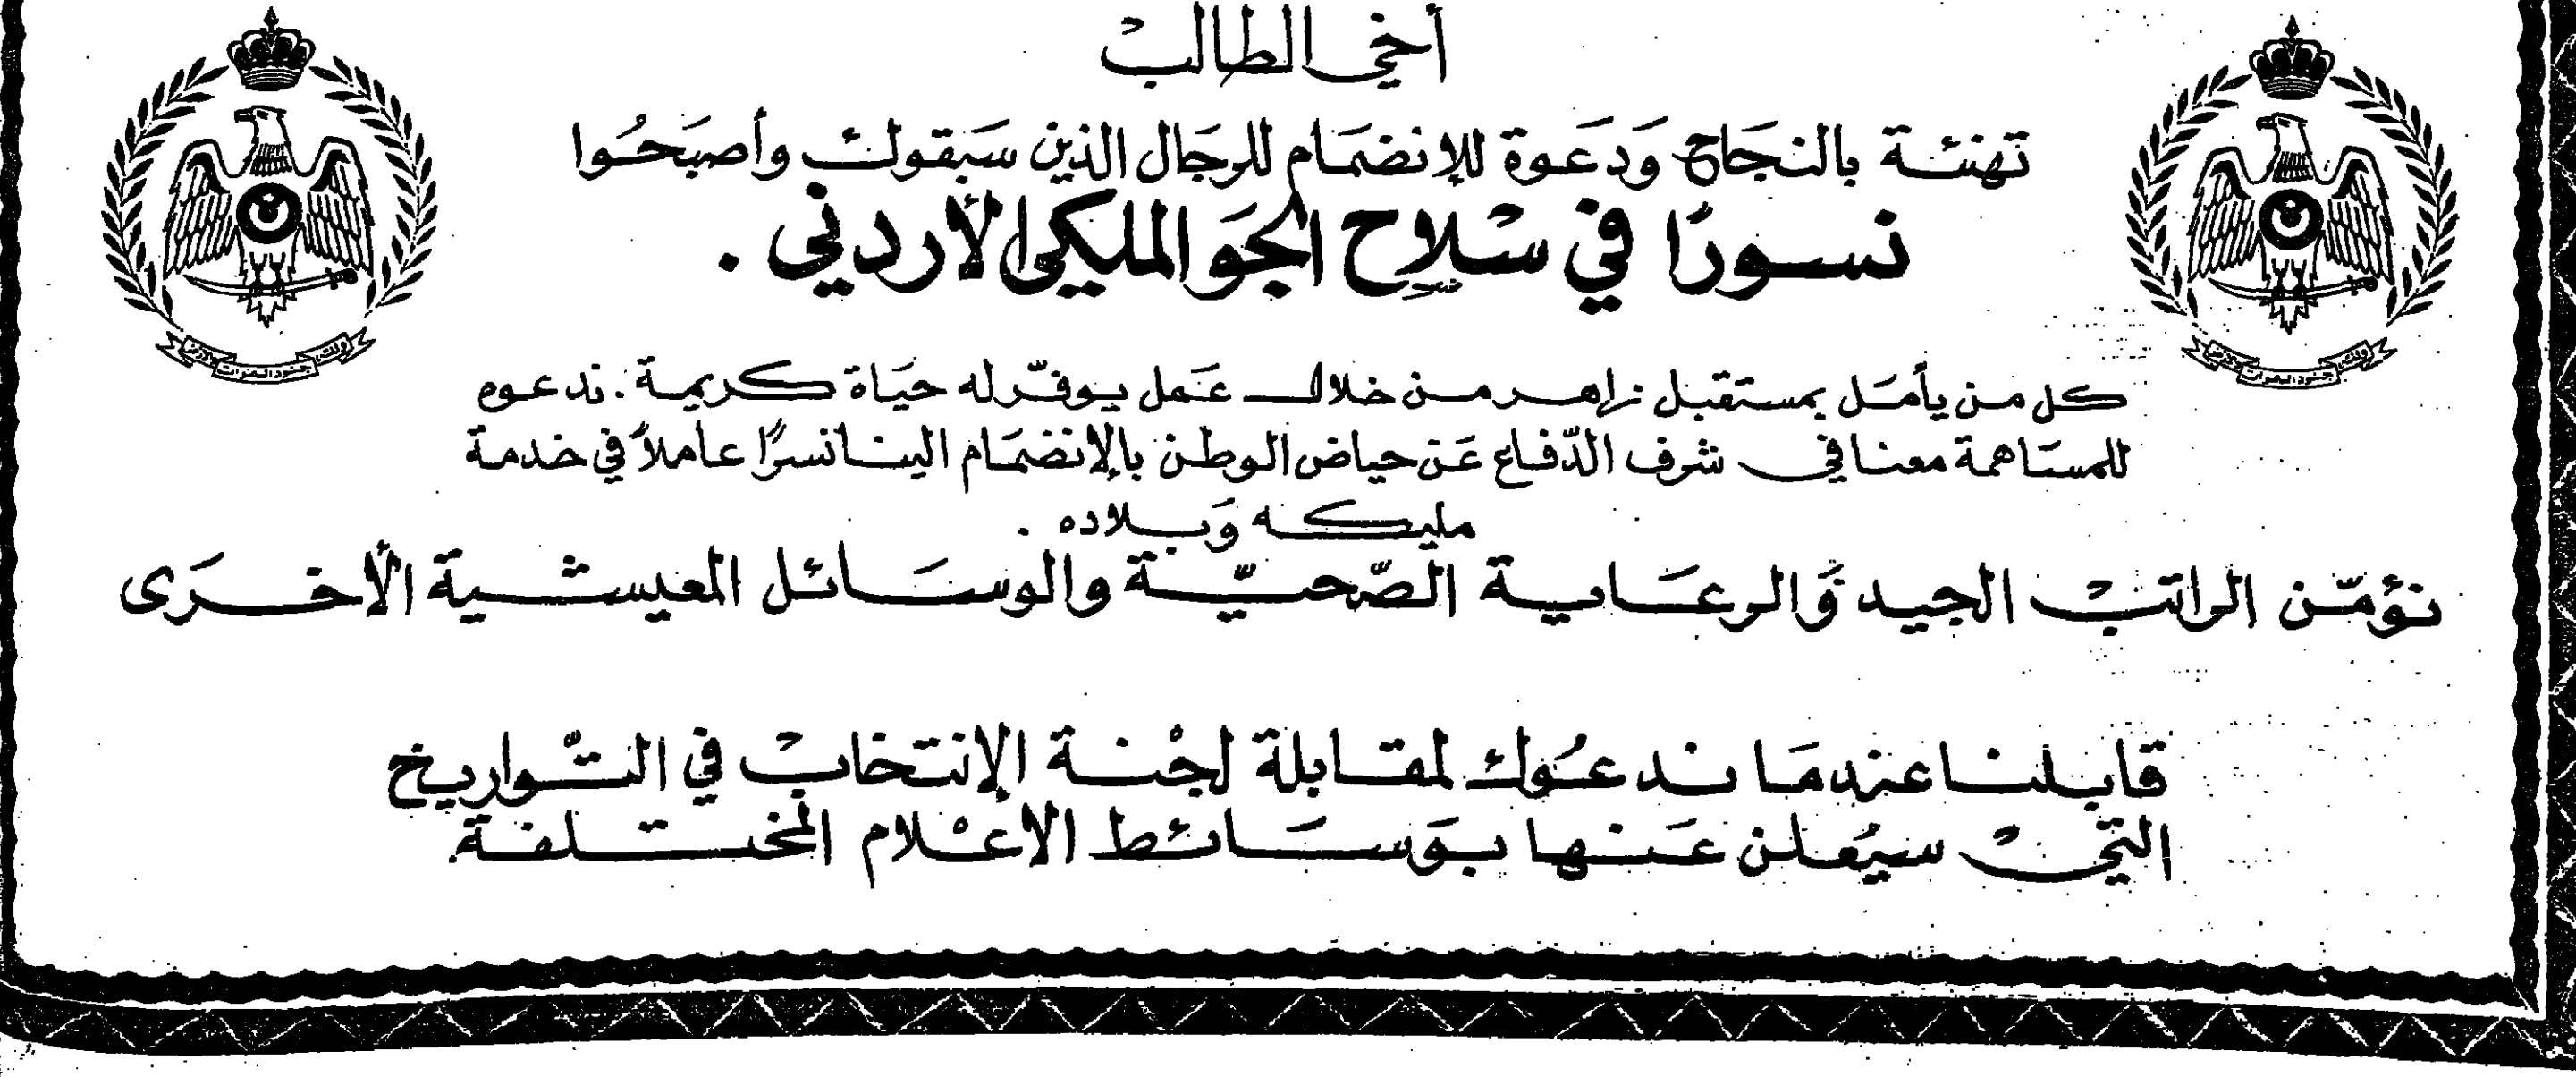 أخي الطالب
تهنئة بالنجاح ودعوة للإنضمام للرجال الذين سبقوك وأصبحوا
نسورًا في سلاح الجو الملكي الأردني .
كل من يأمل بمستقبل زاهر من خلال عمل يوفّر له حياة كريمة . ندعوه
للمساهمة معنا في شرف الدّفاع عن حياض الوطن بالإنضمام الينا نسرًا عاملاً في خدمة
مليكه وبلاده .
نؤمّن الراتب الجيد والرعاية الصّحيّة والوسائل المعيشية الأخرى
قابلنا عندما ندعوك لمقابلة لجنة الإنتخاب في التّواريخ
التي سيُعلن عنها بوسائط الإعلام المختلفة.